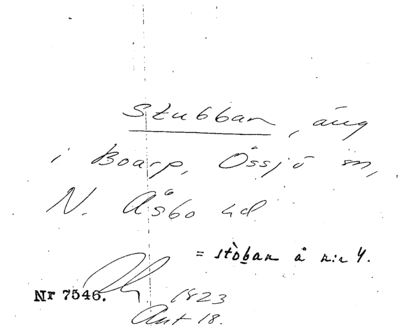 Stubban, äng
i Boarp, Össjö sn,
N. Åsbo hd
= stòban å n:r 4.
Nr 7546.
1823
Ant 18.